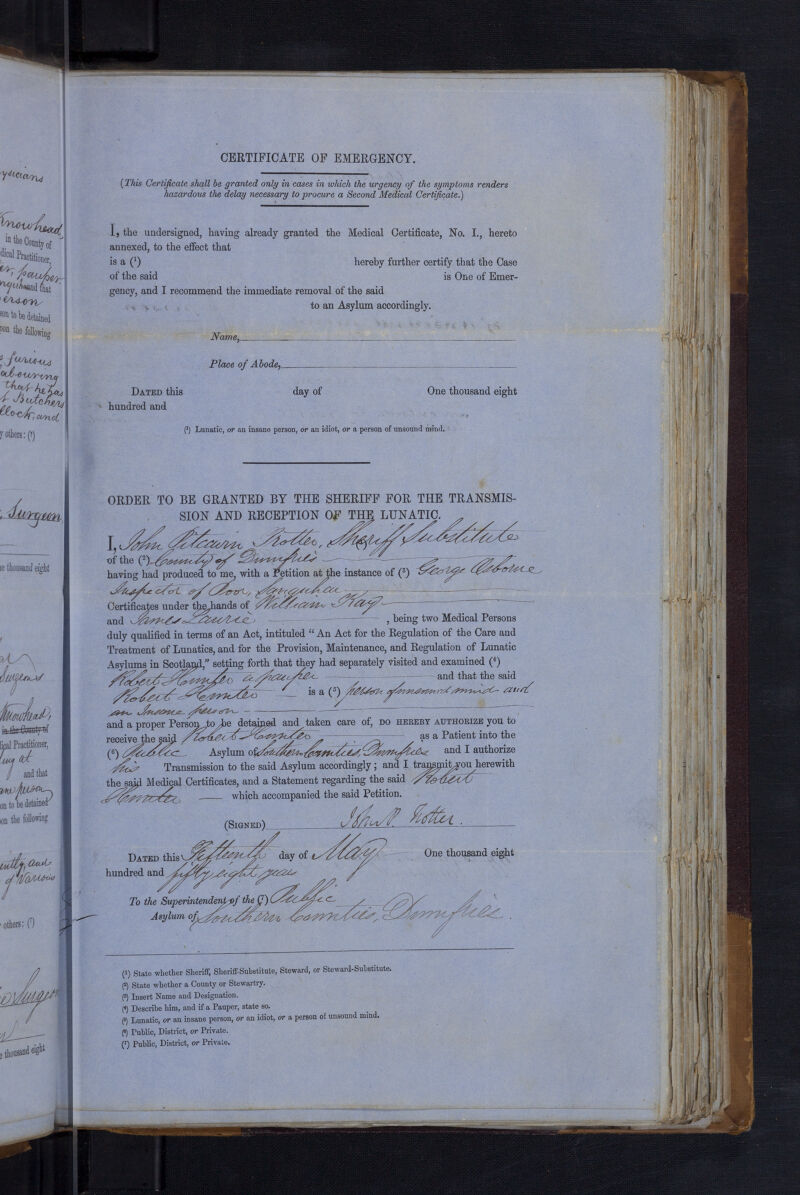 ysicians
Knowhead,
in the County of
dical Practitioner,
pauper
and that
erson
son to be detained
pon the following
furious
labouring
that he has
Butchers
Block, and
y others: (7)
Surgeon
e thousand eight
Surgeon
Knowhead,
in the County of
dical Practitioner,
at
and that
person
on to be detained
on the following
and
of Various
others: (7)
Surgeon
e thousand eight
CERTIFICATE OF EMERGENCY.
(This Certificate shall be granted only in cases in which the urgency of the symptoms renders
hazardous the delay necessary to procure a Second Medical Certificate.)
I, the undersigned, having already granted the Medical Certificate, No. I., hereto
annexed, to the effect that
is a (1) hereby further certify that the Case
of the said is One of Emer-
gency, and I recommend the immediate removal of the said
to an Asylum accordingly.
Name,
Place of Abode,
DATED this day of One thousand eight
hundred and
(1) Lunatic, or an insane person, or an idiot, or a person of unsound mind.
ORDER TO BE GRANTED BY THE SHERIFF FOR THE TRANSMIS-
SION AND RECEPTION OF THE LUNATIC.
I, John Pitcairn Trotter, Sheriff Substitute
of the (2) County of Dumfries
having had produced to me, with a Petition at the instance of (3) George Osborne
Inspector of Poor, Sanquhar
Certificates under the hands of William Kay
and James Laurie, being two Medical Persons
duly qualified in terms of an Act, intituled "An Act for the Regulation of the Care and
Treatment of Lunatics, and for the Provision, Maintenance, and Regulation of Lunatic
Asylums in Scotland," setting forth that they had separately visited and examined (4)
Robert Hunter a pauper and that the said
Robert Hunter is a (5) person of unsound mind and
an Insane person
and a proper Person to be detained and taken care of, DO HEREBY AUTHORIZE you to
receive the said Robert Hunter as a Patient into the
(6) Public Asylum of Southern Counties, Dumfries and I authorize
his Transmission to the said Asylum accordingly; and I transmit you herewith
the said Medical Certificates, and a Statement regarding the said Robert
Hunter which accompanied the said Petition.
(SIGNED) John P. Trotter.
DATED this Fifteenth day of May One thousand eight
hundred and fifty eight years
To the Superintendent of the (7) Public
Asylum of Southern Counties, Dumfries.
(1) State whether Sheriff, Sheriff-Substitute, Steward, or Steward-Substitute.
(2) State whether a County or Stewartry.
(3) Insert Name and Designation.
(4) Describe him, and if a Pauper, state so.
(5) Lunatic, or an insane person, or an idiot, or a person of unsound mind.
(6) Public, District, or Private.
(7) Public, District, or Private.